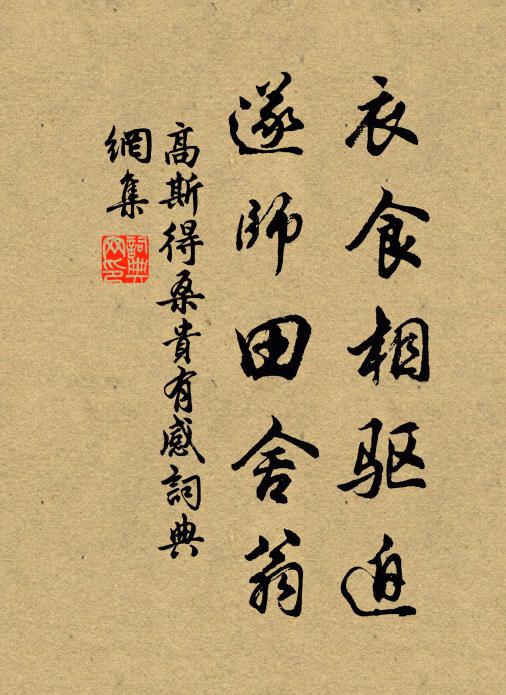 衣食相驱迫
遂师田舍翁
高斯得桑貴有感詞典
網集
詞典
网印